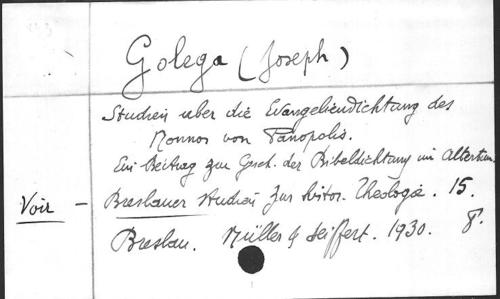 Golega (Joseph)
Studien über die Evangeliendichtung des
Nonnos von Panopolis.
Ein Beitrag zur Gesch. der Bibeldichtung im Altertum.
Voir - Breslauer Studien zur histor. Theologie. 15.
Breslau. Müller & Seiffert. 1930. 8.